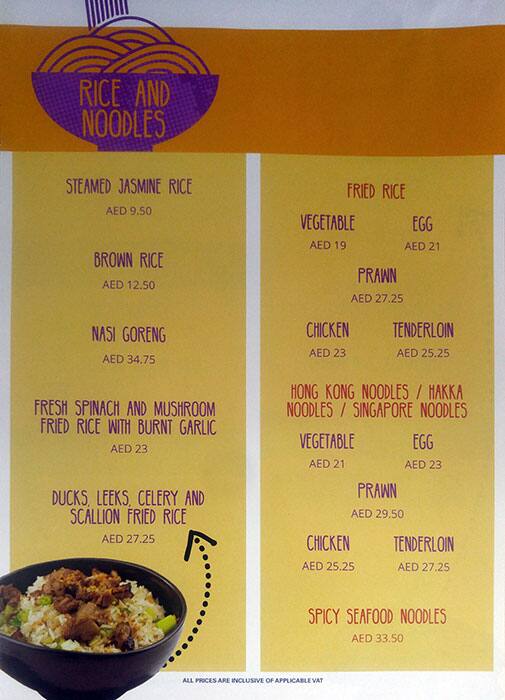 RICE AND
NOODLES
STEAMED JASMINE RICE
AED 9.50
BROWN RICE
AED 12.50
NASI GORENG
AED 34.75
FRESH SPINACH AND MUSHROOM
FRIED RICE WITH BURNT GARLIC
AED 23
DUCKS, LEEKS, CELERY AND
SCALLION FRIED RICE
AED 27.25
FRIED RICE
VEGETABLE EGG
AED 19 AED 21
PRAWN
AED 27.25
CHICKEN TENDERLOIN
AED 23 AED 25.25
HONG KONG NOODLES / HAKKA
NOODLES / SINGAPORE NOODLES
VEGETABLE EGG
AED 21 AED 23
PRAWN
AED 29.50
CHICKEN TENDERLOIN
AED 25.25 AED 27.25
SPICY SEAFOOD NOODLES
AED 33.50
ALL PRICES ARE INCLUSIVE OF APPLICABLE VAT